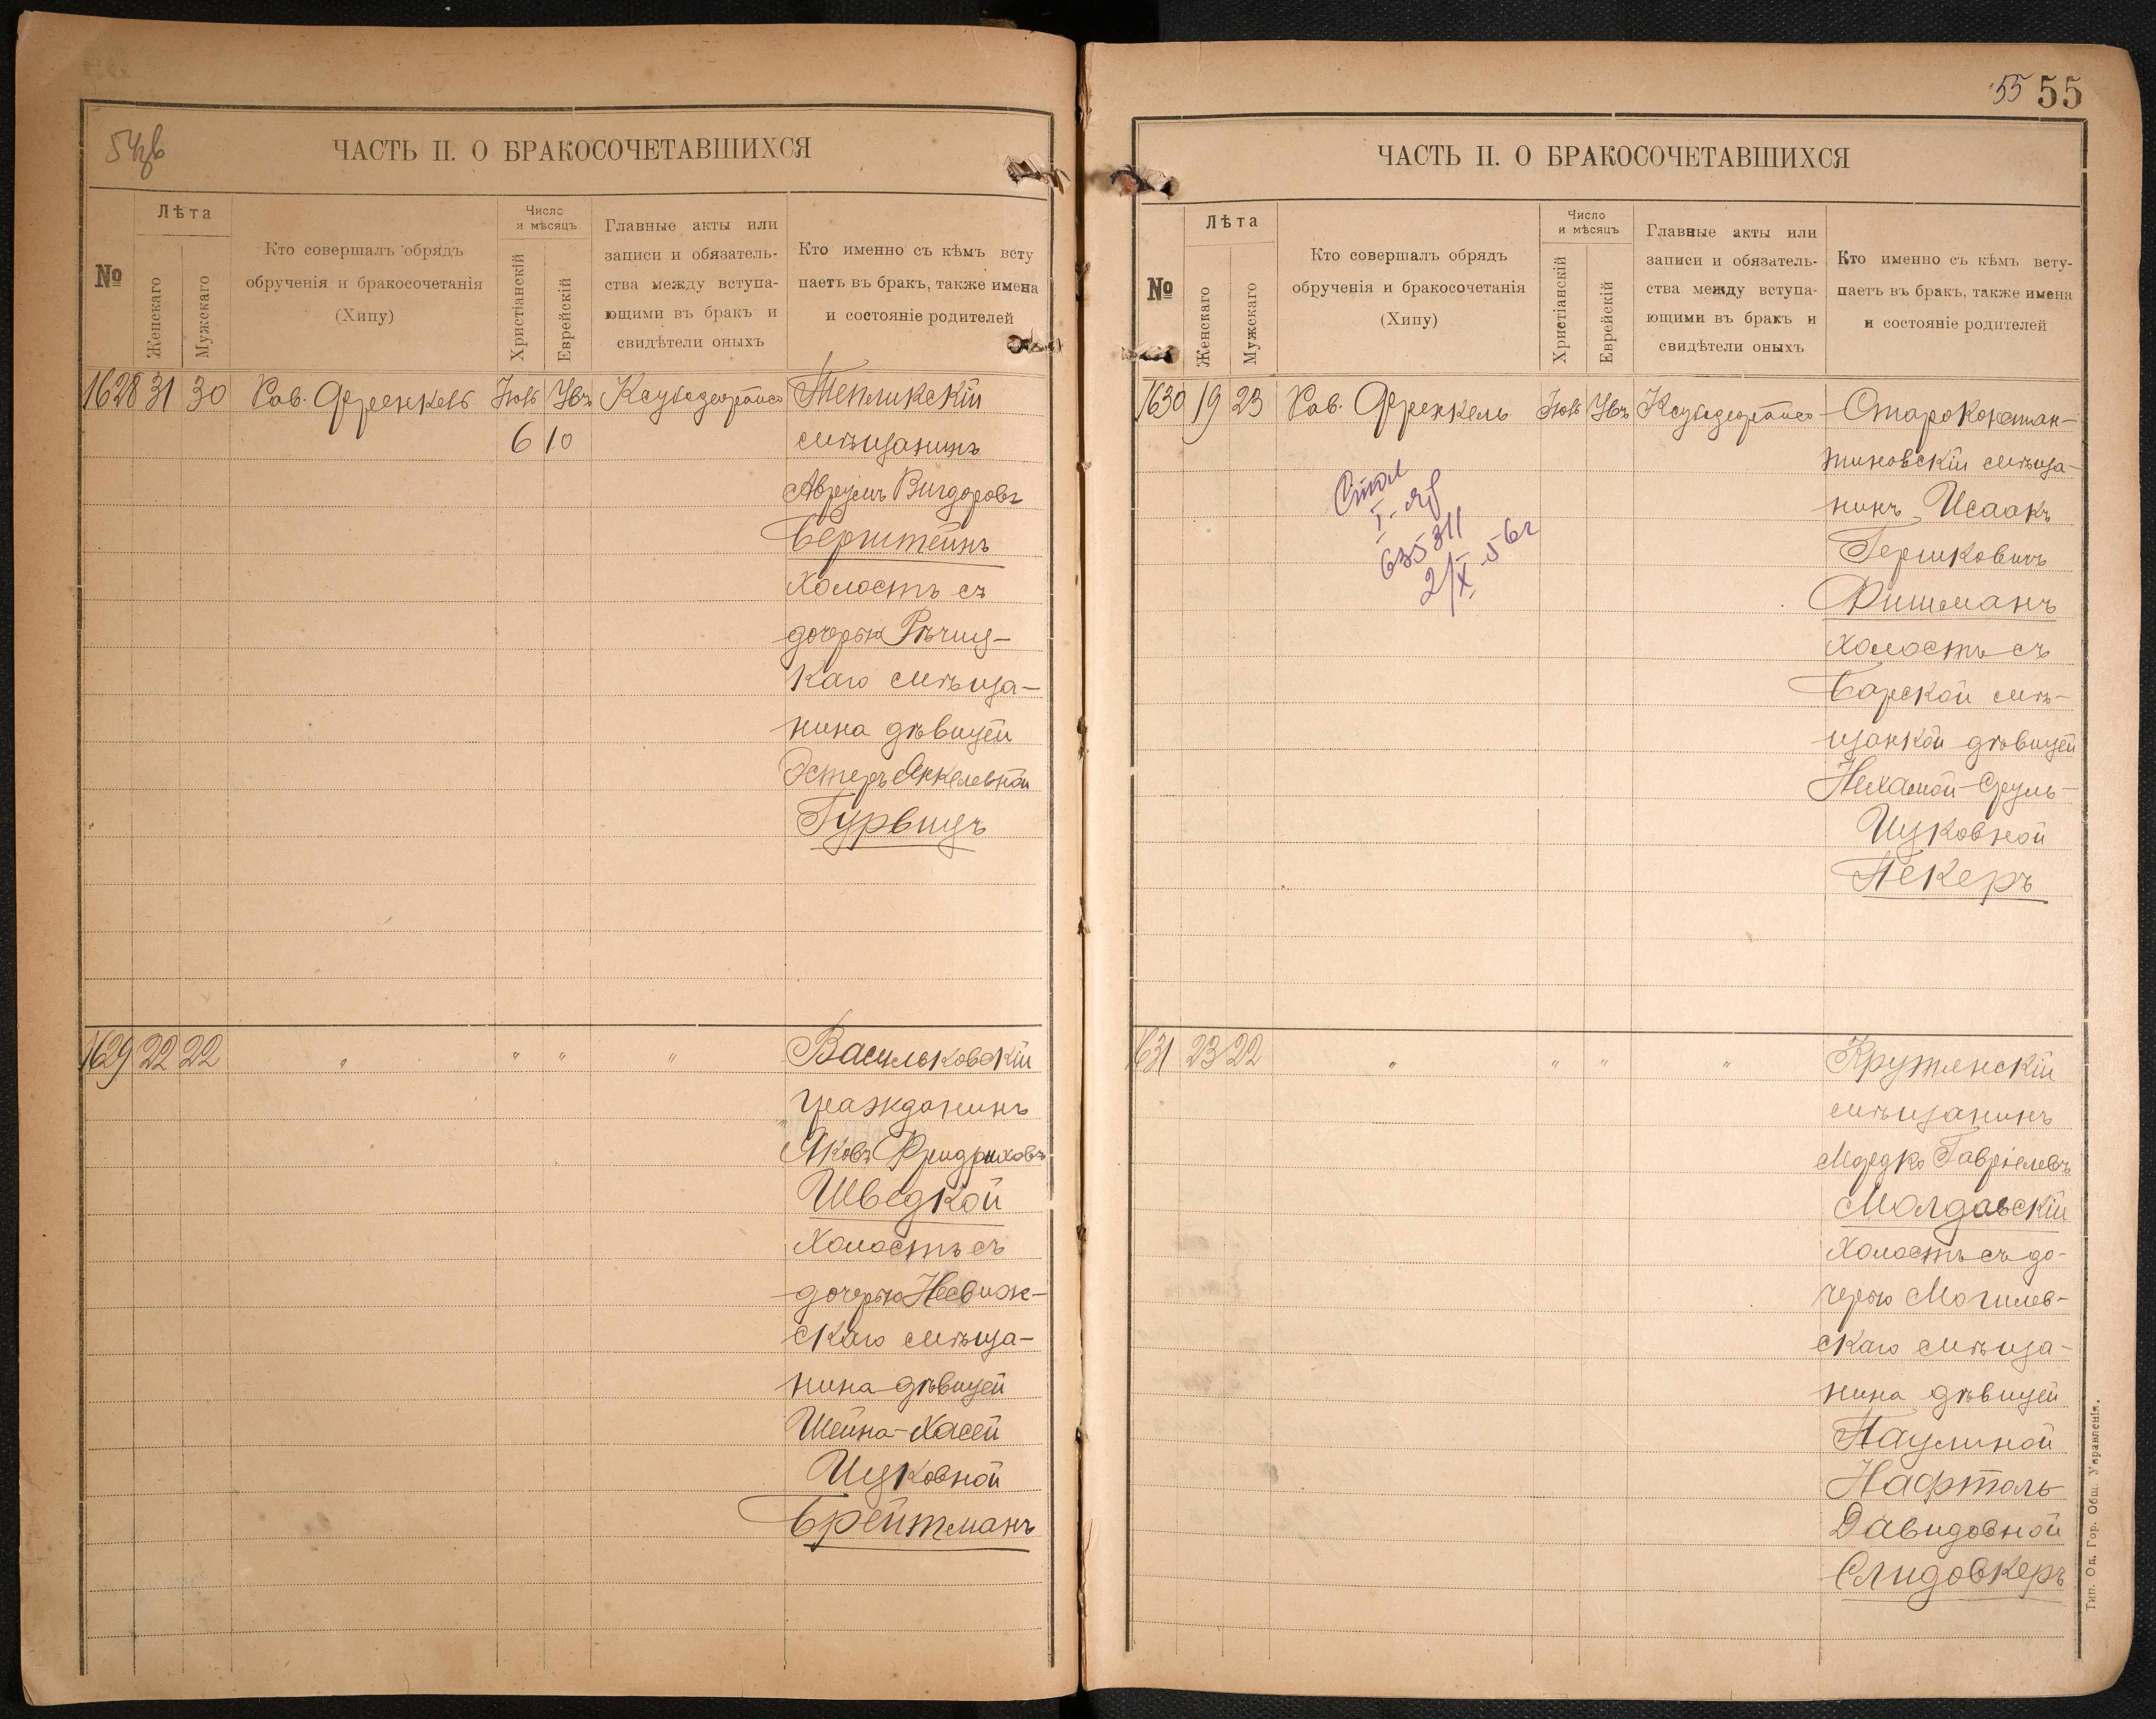 54 об
ЧАСТЬ II. О БРАКОСОЧЕТАВШИХСЯ
№
Лѣта
Женскаго
Мужскаго
Кто совершалъ обрядъ
обрученія и бракосочетанія
(Хипу)
Число
и мѣсяцъ
Христіанскій
Еврейскій
Главные акты или
записи и обязатель-
ства между вступа-
ющими въ бракъ и
свидѣтели оныхъ
Кто именно съ кѣмъ всту
паетъ въ бракъ, также имена
и состояніе родителей
1628 31 30 Рав. Френкель
6 10
Тепликскій
мѣщанинъ
Аврумъ Вигдоровъ
Бернштейнъ
холостъ съ
дочерью Рѣчиц-
каго мѣща-
нина дѣвицей
Эстеръ Янкелевной
Гурвицъ
1629 22 22 " " " "
Васильковскій
гражданинъ
Яковъ Фридриховъ
Шведкой
холостъ съ
дочерью Несвиж-
скаго мѣща-
нина дѣвицей
Шейна-Хасей
Ицковной
Брейтманъ
55 55
ЧАСТЬ II. О БРАКОСОЧЕТАВШИХСЯ
№
Лѣта
Женскаго
Мужскаго
Кто совершалъ обрядъ
обрученія и бракосочетанія
(Хипу)
Число
и мѣсяцъ
Христіанскій
Еврейскій
Главные акты или
записи и обязатель-
ства между вступа-
ющими въ бракъ и
свидѣтели оныхъ
Кто именно съ кѣмъ всту-
паетъ въ бракъ, также имена
и состояніе родителей
1630 19 23 Рав. Френкель
635311
2/X 56г
Староконстан-
тиновскій мѣща-
нинъ Исаакъ
Гершковичъ
Фишманъ
холостъ съ
Барской мѣ-
щанкой дѣвицей
Нехамой-Сруль-
Ицковной
Пекеръ
1631 23 22 " " " "
Кружлянскій
мѣщанинъ
Мордко Гавріелевъ
Молдавскій
холостъ съ до-
черью Могилев-
скаго мѣща-
нина дѣвицей
Паулиной
Нафтоль
Давидовной
Слидовкеръ
Тип. Од. Гор. Общ. Управленія.